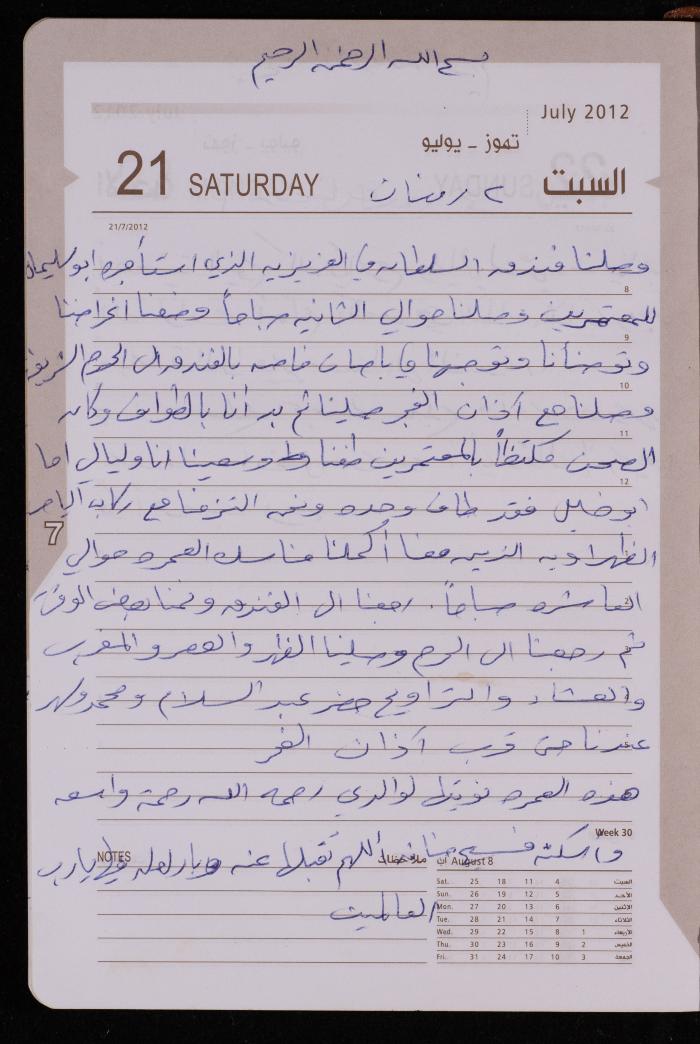 بسم الله الرحمن الرحيم
July 2012
تموز - يوليو
21 SATURDAY ٢ رمضان السبت
21/7/2012
وصلنا فندق السلطانه في العزيزيه الذي استأجره ابو سليمان
8
للمعتمرين وصلنا حوالي الثانيه صباحاً وضعنا اغراضنا
9
وتوضأنا وتوجهنا في باصات خاصه بالفندق الى الحرم الشريف
10
وصلنا مع آذان الفجر صلينا ثم بدأنا بالطواف وكان
11
الصحن مكتظاً بالمعتمرين طفنا وسعينا انا وليالي اما
12
ابو خليل فقد طاف وحده ونحن التزمنا مع ركاب الباص
7
الظهراويه الذين معنا أكملنا مناسك العمره حوالي
العاشره صباحاً. رجعنا الى الفندق ونمنا بعض الوقت
ثم رجعنا الى الحرم وصلينا الظهر والعصر والمغرب
والعشاء والتراويح حضر عبد السلام ومحمد وسهر
عندنا حتى قرب آذان الفجر
هذه العمره نويتها لوالدي رحمه الله رحمة واسعه
Week 30
وأسكنه فسيح جناته أللهم تقبلها عنه وبارك له فيها يارب
NOTES ملاحظات
العالمين
August 8 آب
Sat. 25 18 11 4 السبت
Sun. 26 19 12 5 الأحد
Mon. 27 20 13 6 الاثنين
Tue. 28 21 14 7 الثلاثاء
Wed. 29 22 15 8 1 الأربعاء
Thu. 30 23 16 9 2 الخميس
Fri. 31 24 17 10 3 الجمعة